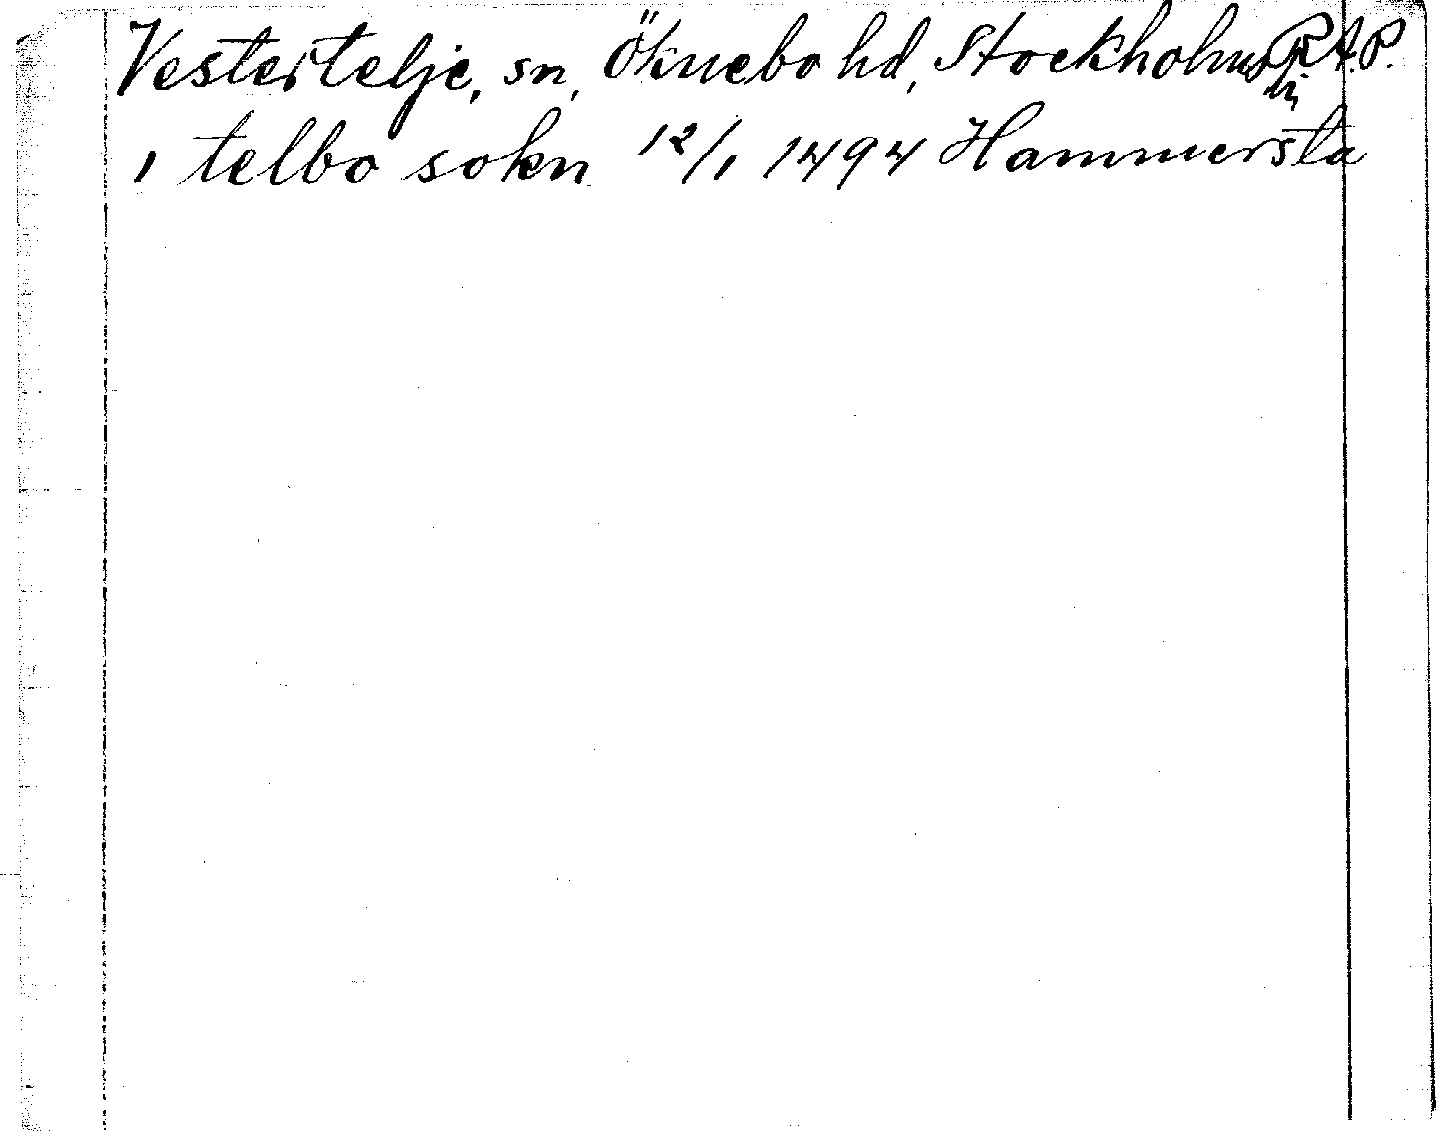 Vestertelje, sn, Öknebo hd, Stockholms li R.A.P.
i telbo sokn 12/1 1494 Hammersta